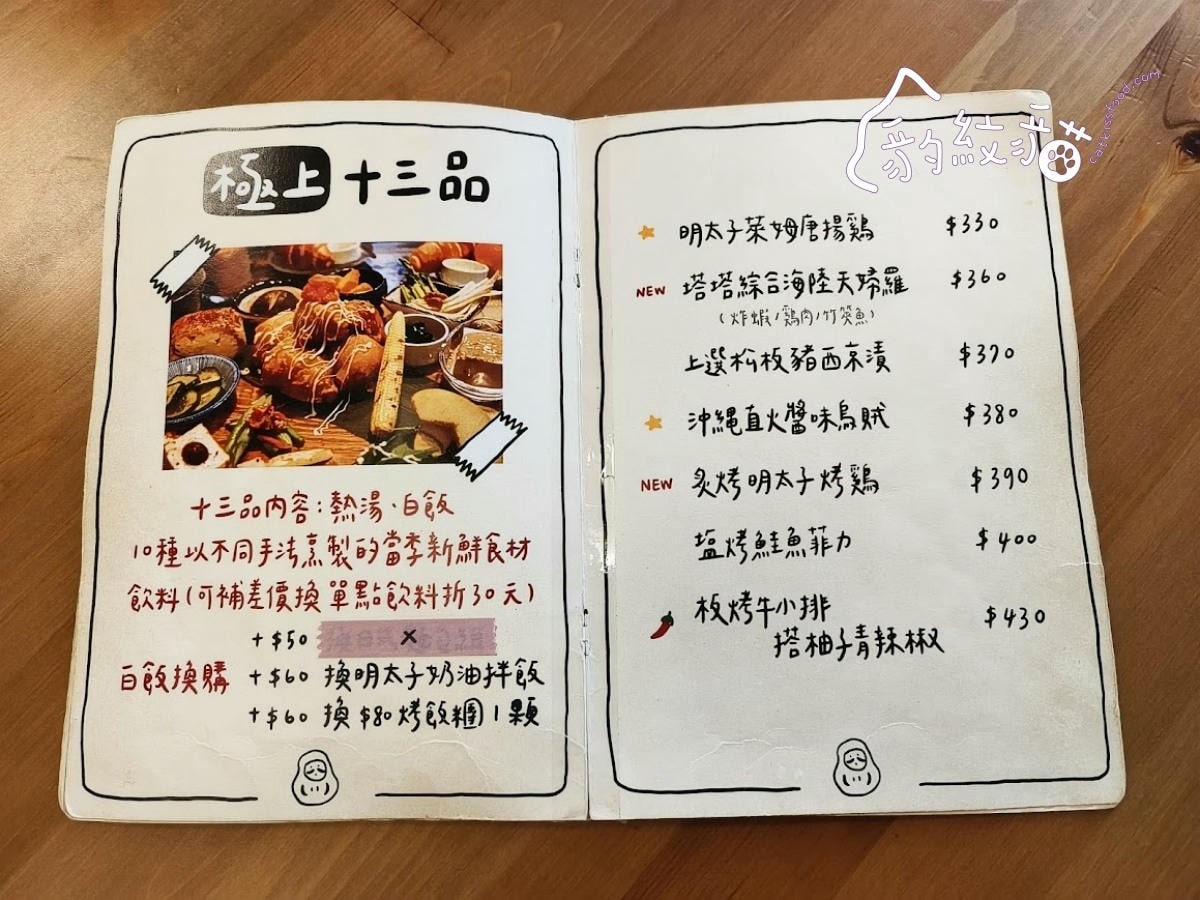 極上十三品
十三品內容:熱湯、白飯
10種以不同手法烹製的當季新鮮食材
飲料(可補差價換單點飲料折30元)
+$50 ×
白飯換購 +$60 換明太子奶油拌飯
+$60 換$80烤飯糰1顆
豹紋貓
catkissfood.com
明太子萊姆唐揚鷄 $330
NEW 塔塔綜合海陸天婦羅 $360
(炸蝦/鷄肉/竹筴魚)
上選松板豬西京漬 $370
沖縄直火醬味烏賊 $380
NEW 炙烤明太子烤鷄 $390
塩烤鮭魚菲力 $400
板烤牛小排 $430
搭柚子青辣椒